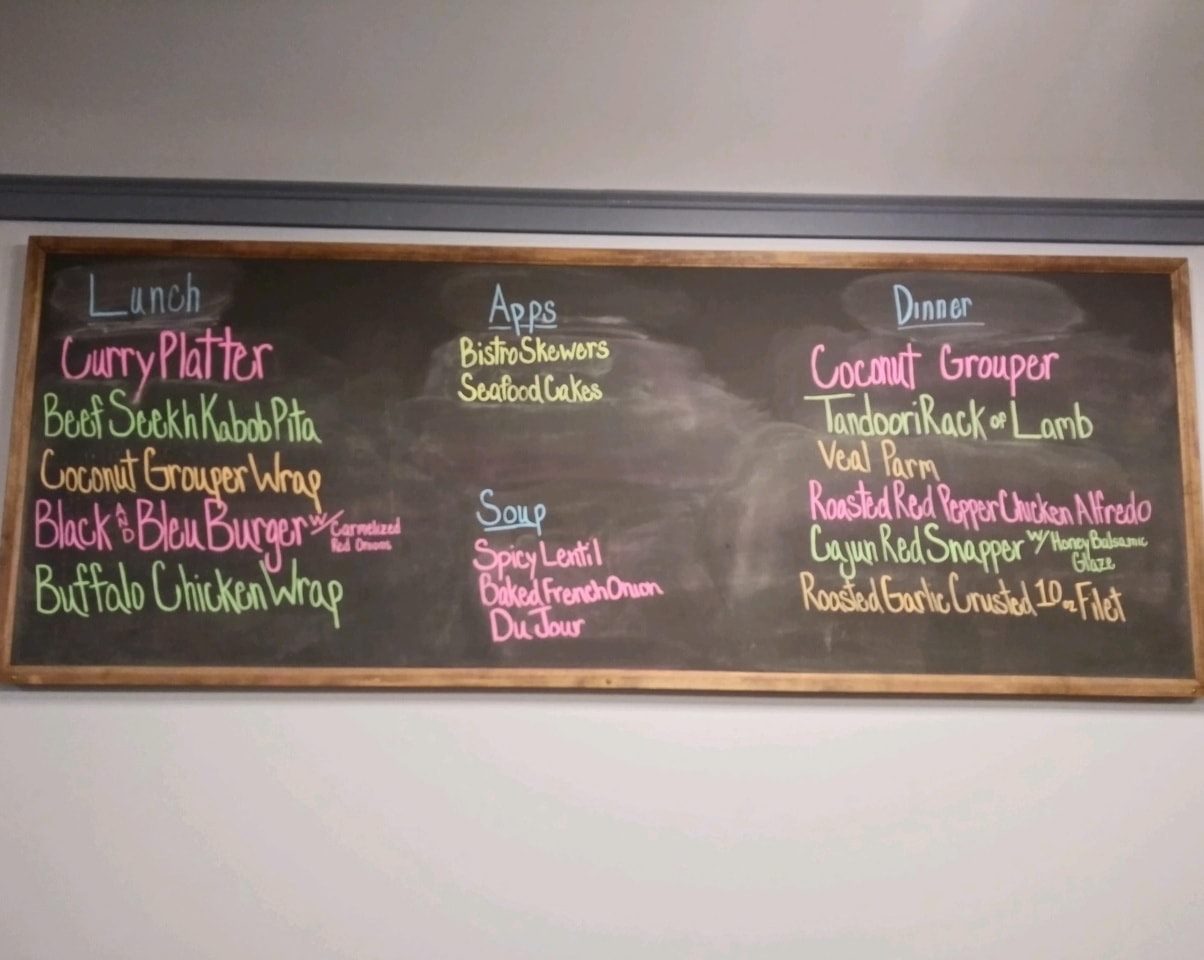 Lunch
Curry Platter
Beef Seekh Kabob Pita
Coconut Grouper Wrap
Black AND Bleu Burger w/ Carmelized
Red Onions
Buffalo Chicken Wrap
Apps
Bistro Skewers
Seafood Cakes
Soup
Spicy Lentil
Baked French Onion
Du Jour
Dinner
Coconut Grouper
Tandoori Rack of Lamb
Veal Parm
Roasted Red Pepper Chicken Alfredo
Cajun Red Snapper w/ Honey Balsamic
Glaze
Roasted Garlic Crusted 10 oz Filet